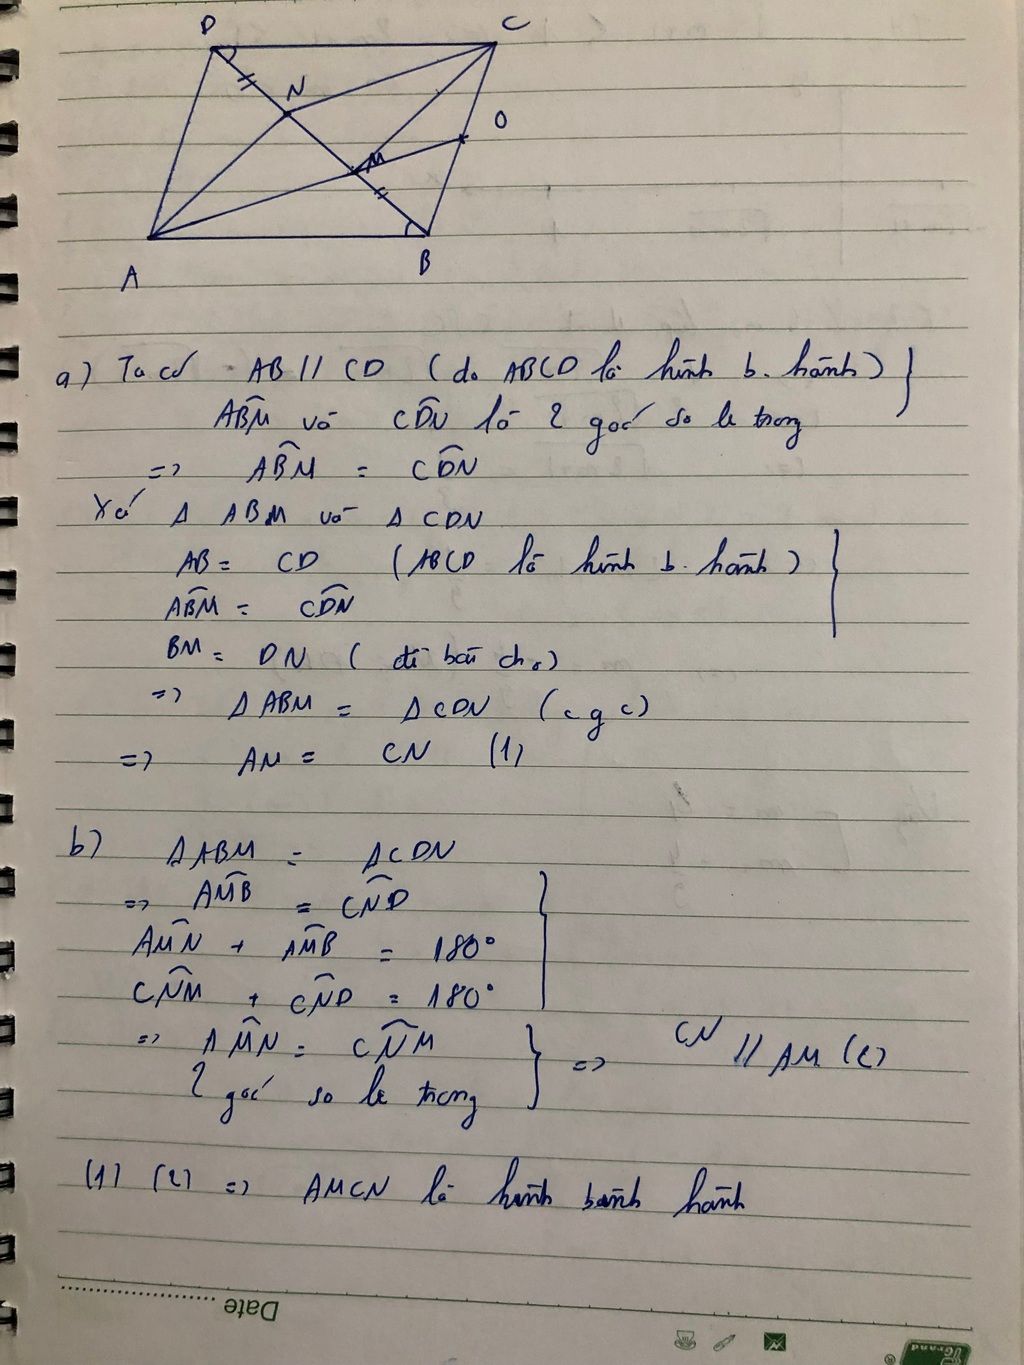 D
C
N
O
M
A
B
a) Ta có AB // CD (do ABCD là hình b. hành)
ABM̂ và CDN̂ là 2 góc so le trong
=> ABM̂ = CDN̂
Xét Δ ABM và Δ CDN
AB = CD (ABCD là hình b. hành)
ABM̂ = CDN̂
BM = DN (đề bài cho)
=> Δ ABM = Δ CDN (c g c)
=> AM = CN (1)
b) Δ ABM = Δ CDN
=> AMB̂ = CND̂
AMN̂ + AMB̂ = 180°
CNM̂ + CND̂ = 180°
=> AMN̂ = CNM̂
2 góc so le trong
=> CN // AM (2)
(1) (2) => AMCN là hình bình hành
Date
Grand